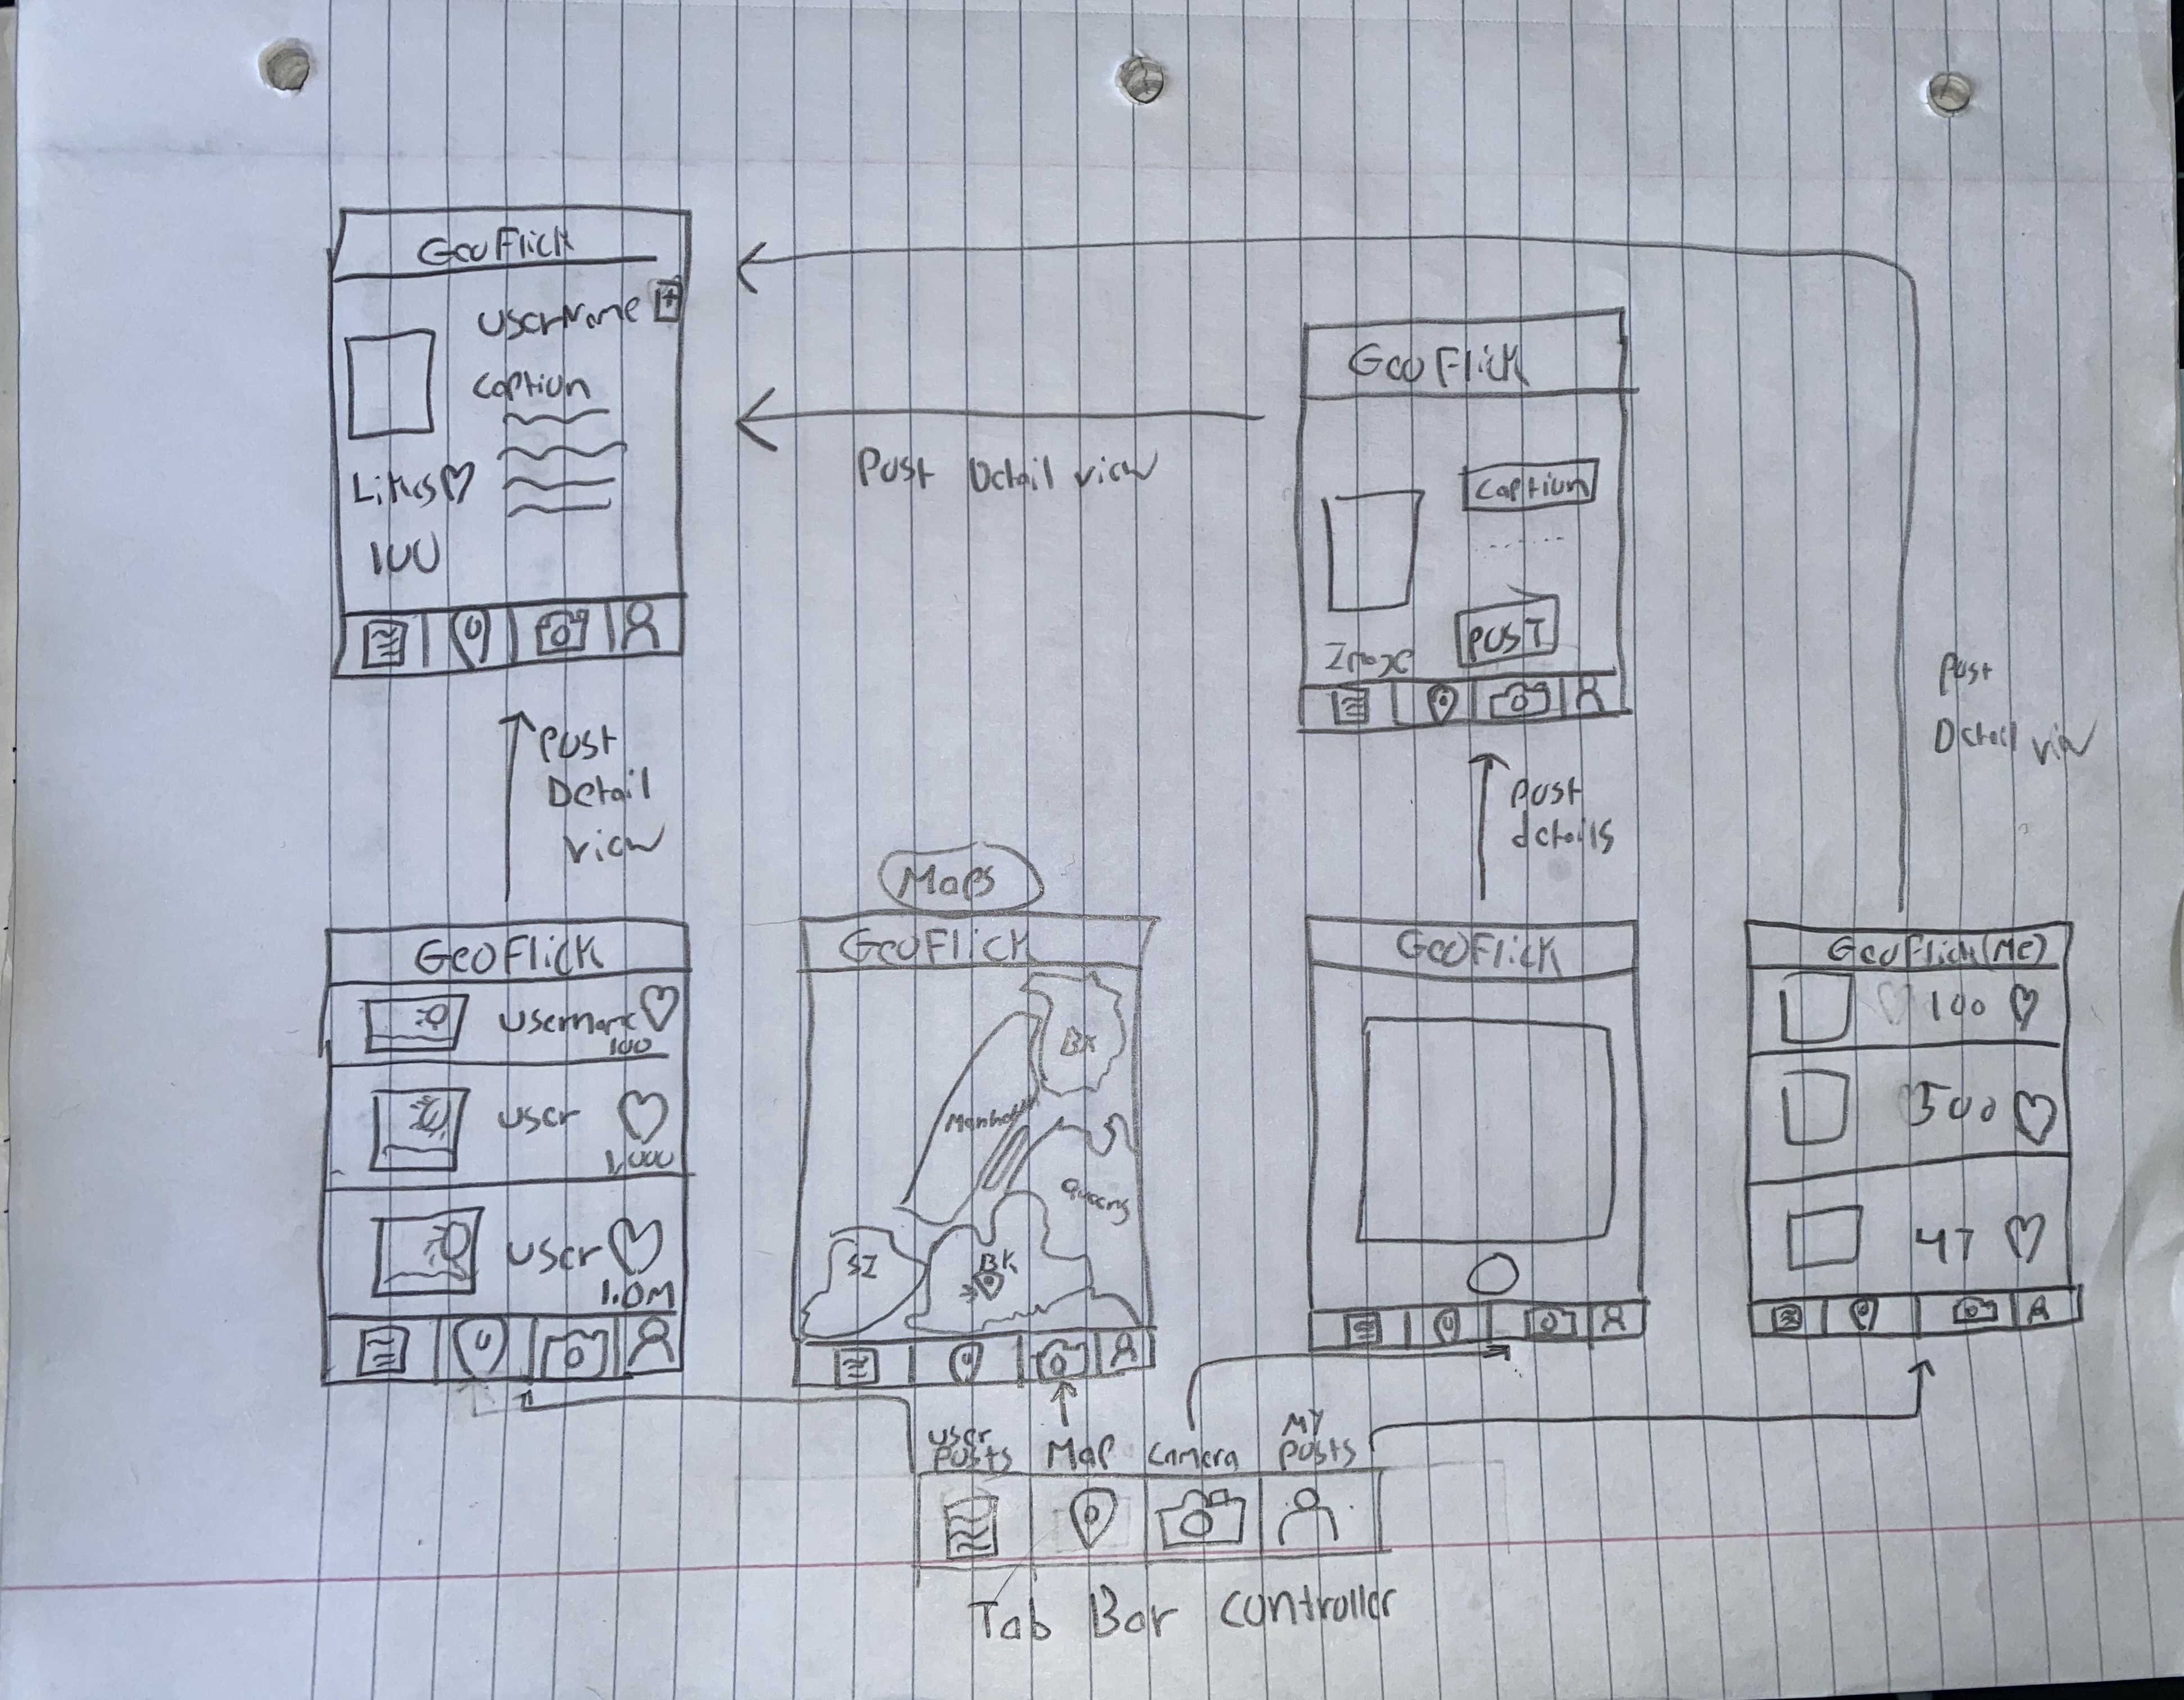 GeoFlick
UserName +
Caption
Likes
100
Post Detail view
GeoFlick
Caption
POST
Image
Post
Detail
view
Post
details
Post
Detail view
Maps
GeoFlick
Username
100
User
1,000
User
1.0M
GeoFlick
BK
Manhattan
Queens
SI
BK
GeoFlick
GeoFlick (ME)
100
500
47
User
Posts
Map
Camera
MY
posts
Tab Bar controller